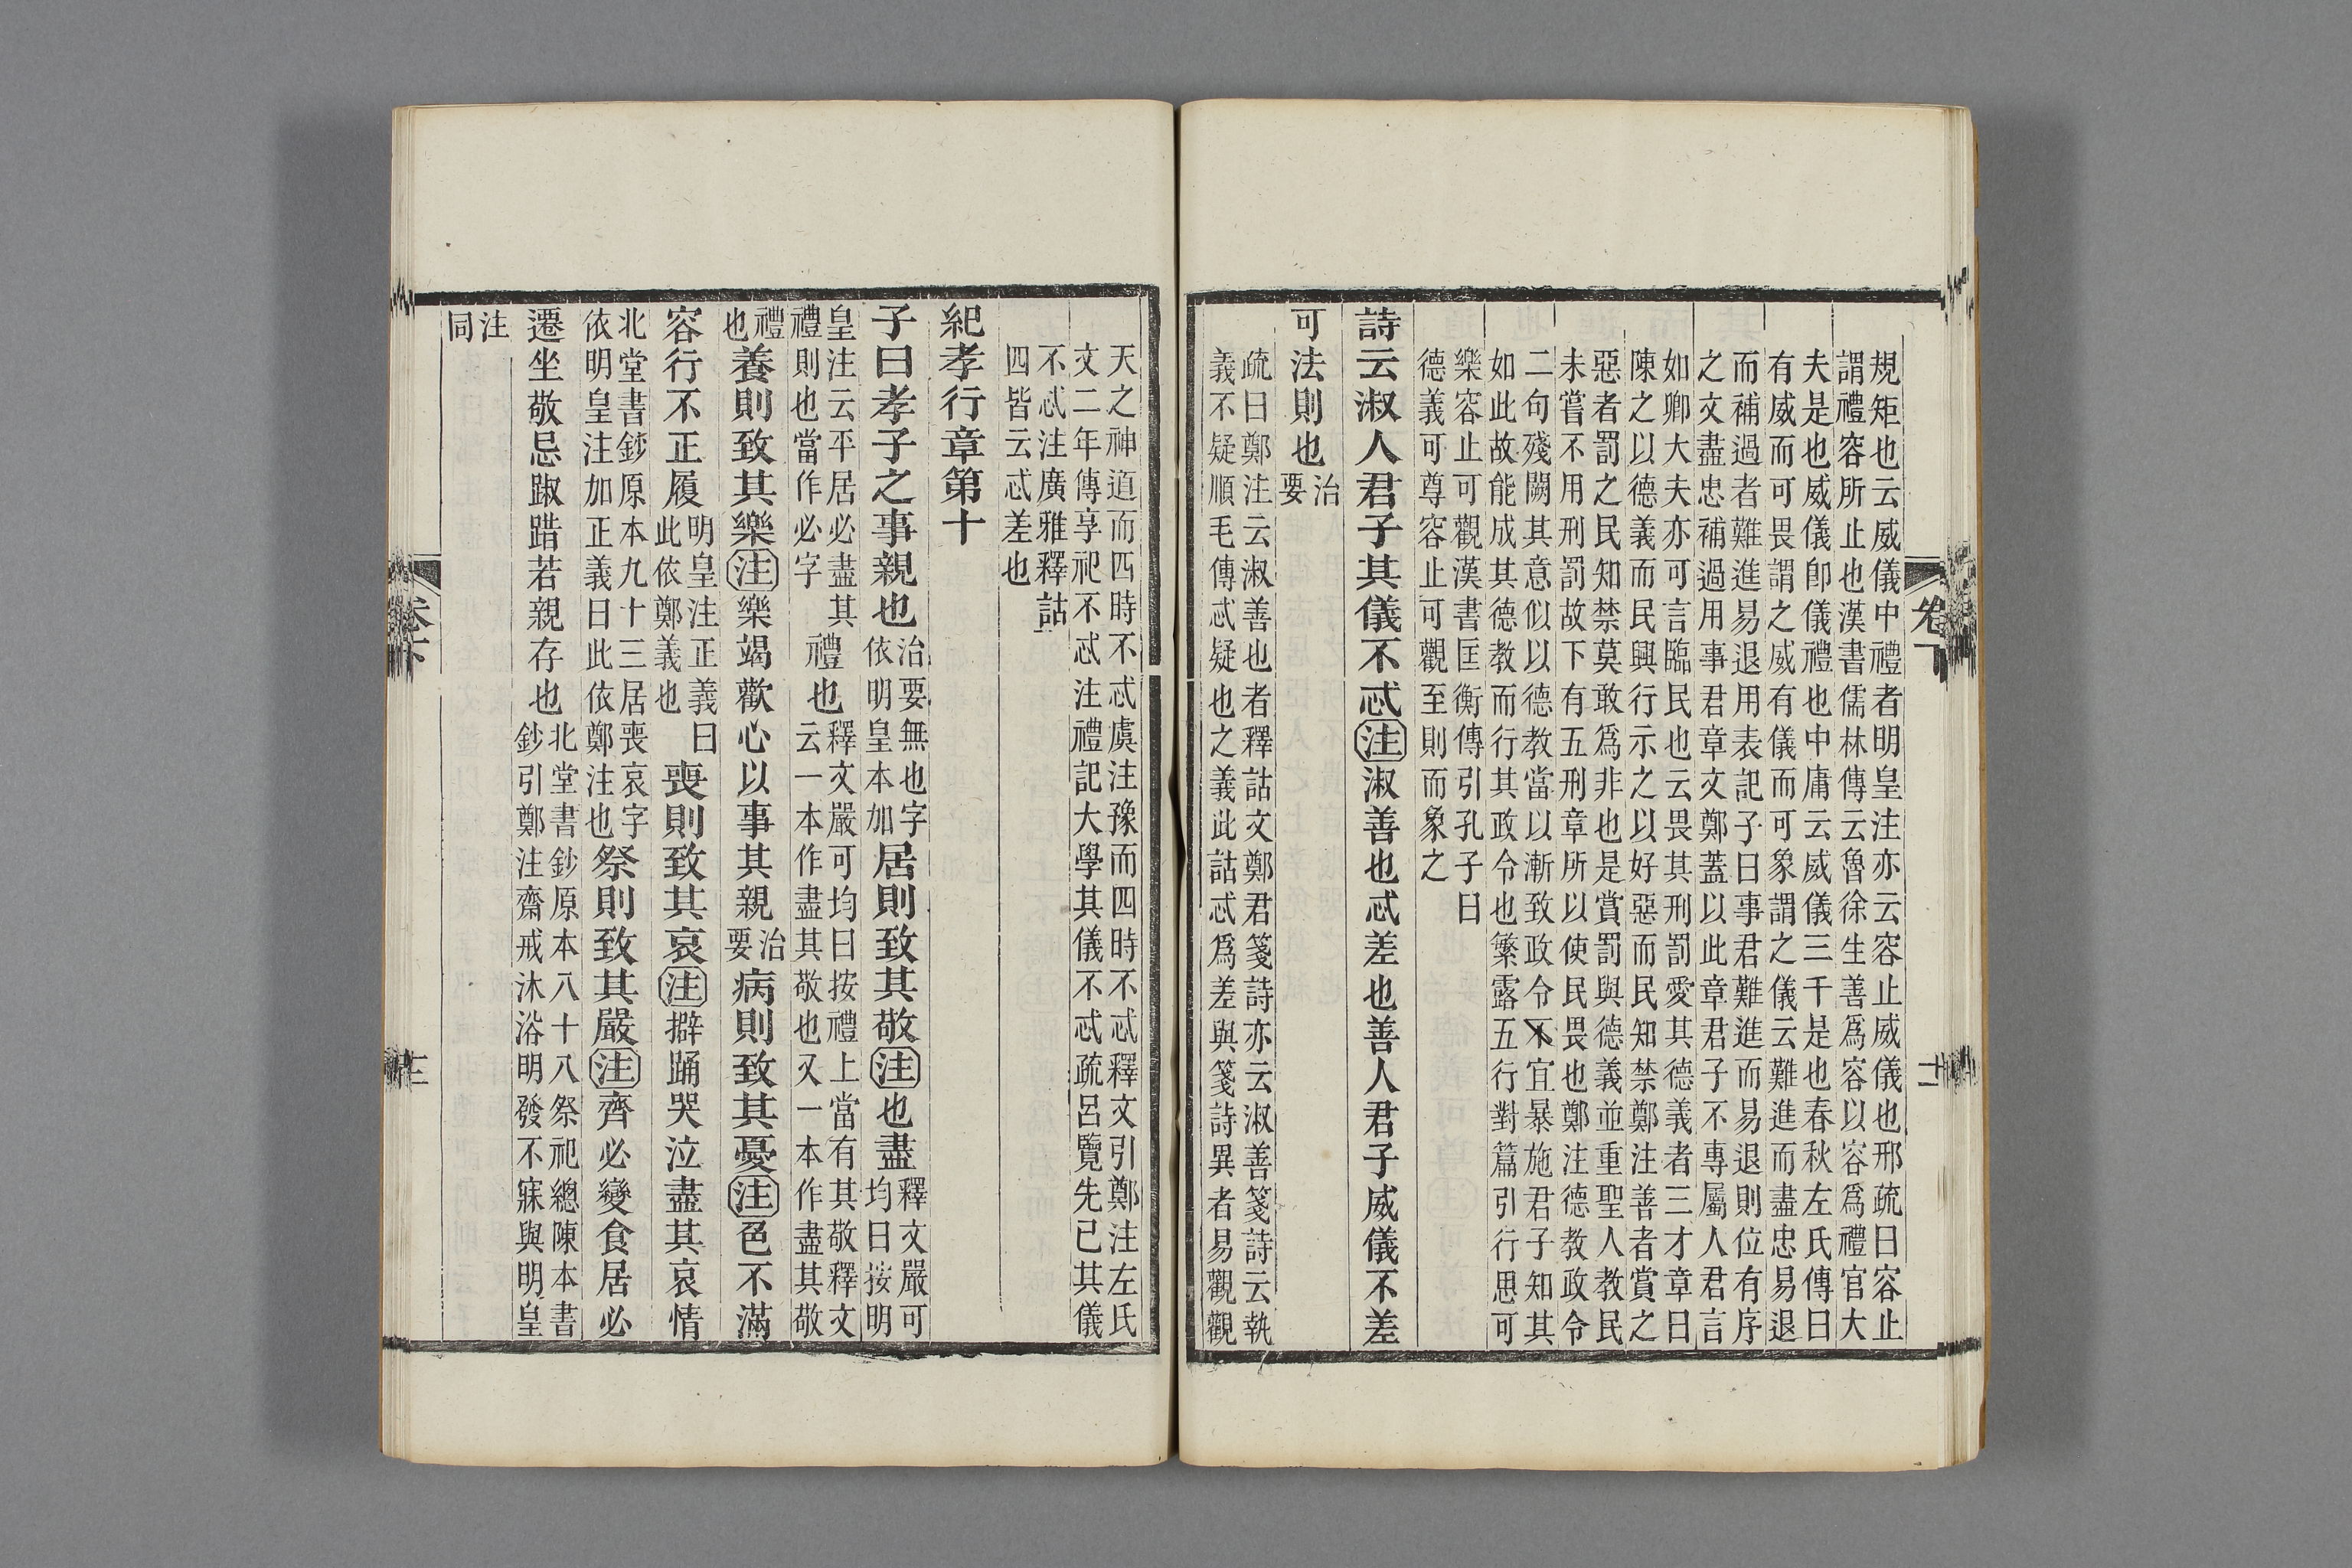 規矩也云威儀中禮者明皇注亦云容止威儀也邢疏曰容止
謂禮容所止也漢書儒林傳云魯徐生善爲容以容爲禮官大
夫是也威儀卽儀禮也中庸云威儀三千是也春秋左氏傳曰
有威而可畏謂之威有儀而可象謂之儀云難進而盡忠易退
而補過者難進易退用表記子曰事君難進而易退則位有序
之文盡忠補過用事君章文鄭蓋以此章君子不專屬人君言
如卿大夫亦可言臨民也云畏其刑罰愛其德義者三才章曰
陳之以德義而民興行示之以好惡而民知禁鄭注善者賞之
惡者罰之民知禁莫敢爲非也是賞罰與德義並重聖人教民
未嘗不用刑罰故下有五刑章所以使民畏也鄭注德教政令
二句殘闕其意似以德教當以漸致政令不宜暴施君子知其
如此故能成其德教而行其政令也繁露五行對篇引行思可
樂容止可觀漢書匡衡傳引孔子曰
德義可尊容止可觀至則而象之
詩云淑人君子其儀不忒注淑善也忒差也善人君子威儀不差
可法則也治要
疏曰鄭注云淑善也者釋詁文鄭君箋詩亦云淑善箋詩云執
義不疑順毛傳忒疑也之義此詁忒爲差與箋詩異者易觀觀
天之神道而四時不忒虞注豫而四時不忒釋文引鄭注左氏
文二年傳享祀不忒注禮記大學其儀不忒疏呂覽先已其儀
不忒注廣雅釋詁
四皆云忒差也
紀孝行章第十
子曰孝子之事親也治要無也字依明皇本加居則致其敬注也盡釋文嚴可均曰按明
皇注云平居必盡其禮則也當作必字禮也釋文嚴可均曰按禮上當有其敬釋文云一本作盡其敬也又一本作盡其敬
禮也養則致其樂注樂竭歡心以事其親治要病則致其憂注色不滿
容行不正履明皇注正義曰此依鄭義也喪則致其哀注擗踊哭泣盡其哀情
北堂書鈔原本九十三居喪哀字依明皇注加正義曰此依鄭注也祭則致其嚴注齊必變食居必
遷坐敬忌踧踖若親存也北堂書鈔原本八十八祭祀總陳本書鈔引鄭注齋戒沐浴明發不寐與明皇
注同
卷下
十二
卷下
十三